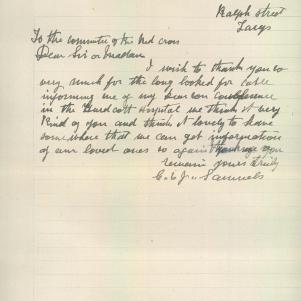 Ralph Street
Largs
To the committee of the Red cross
Dear Sir or madam
I wish to thank you so
very much for the long looked for cable
informing me of my dear son
in the Hospital we think it very
kind of you and think it lovely to have
somewhere that we can get information
of our loved ones so again thanking you
remain yours truly
Samuels